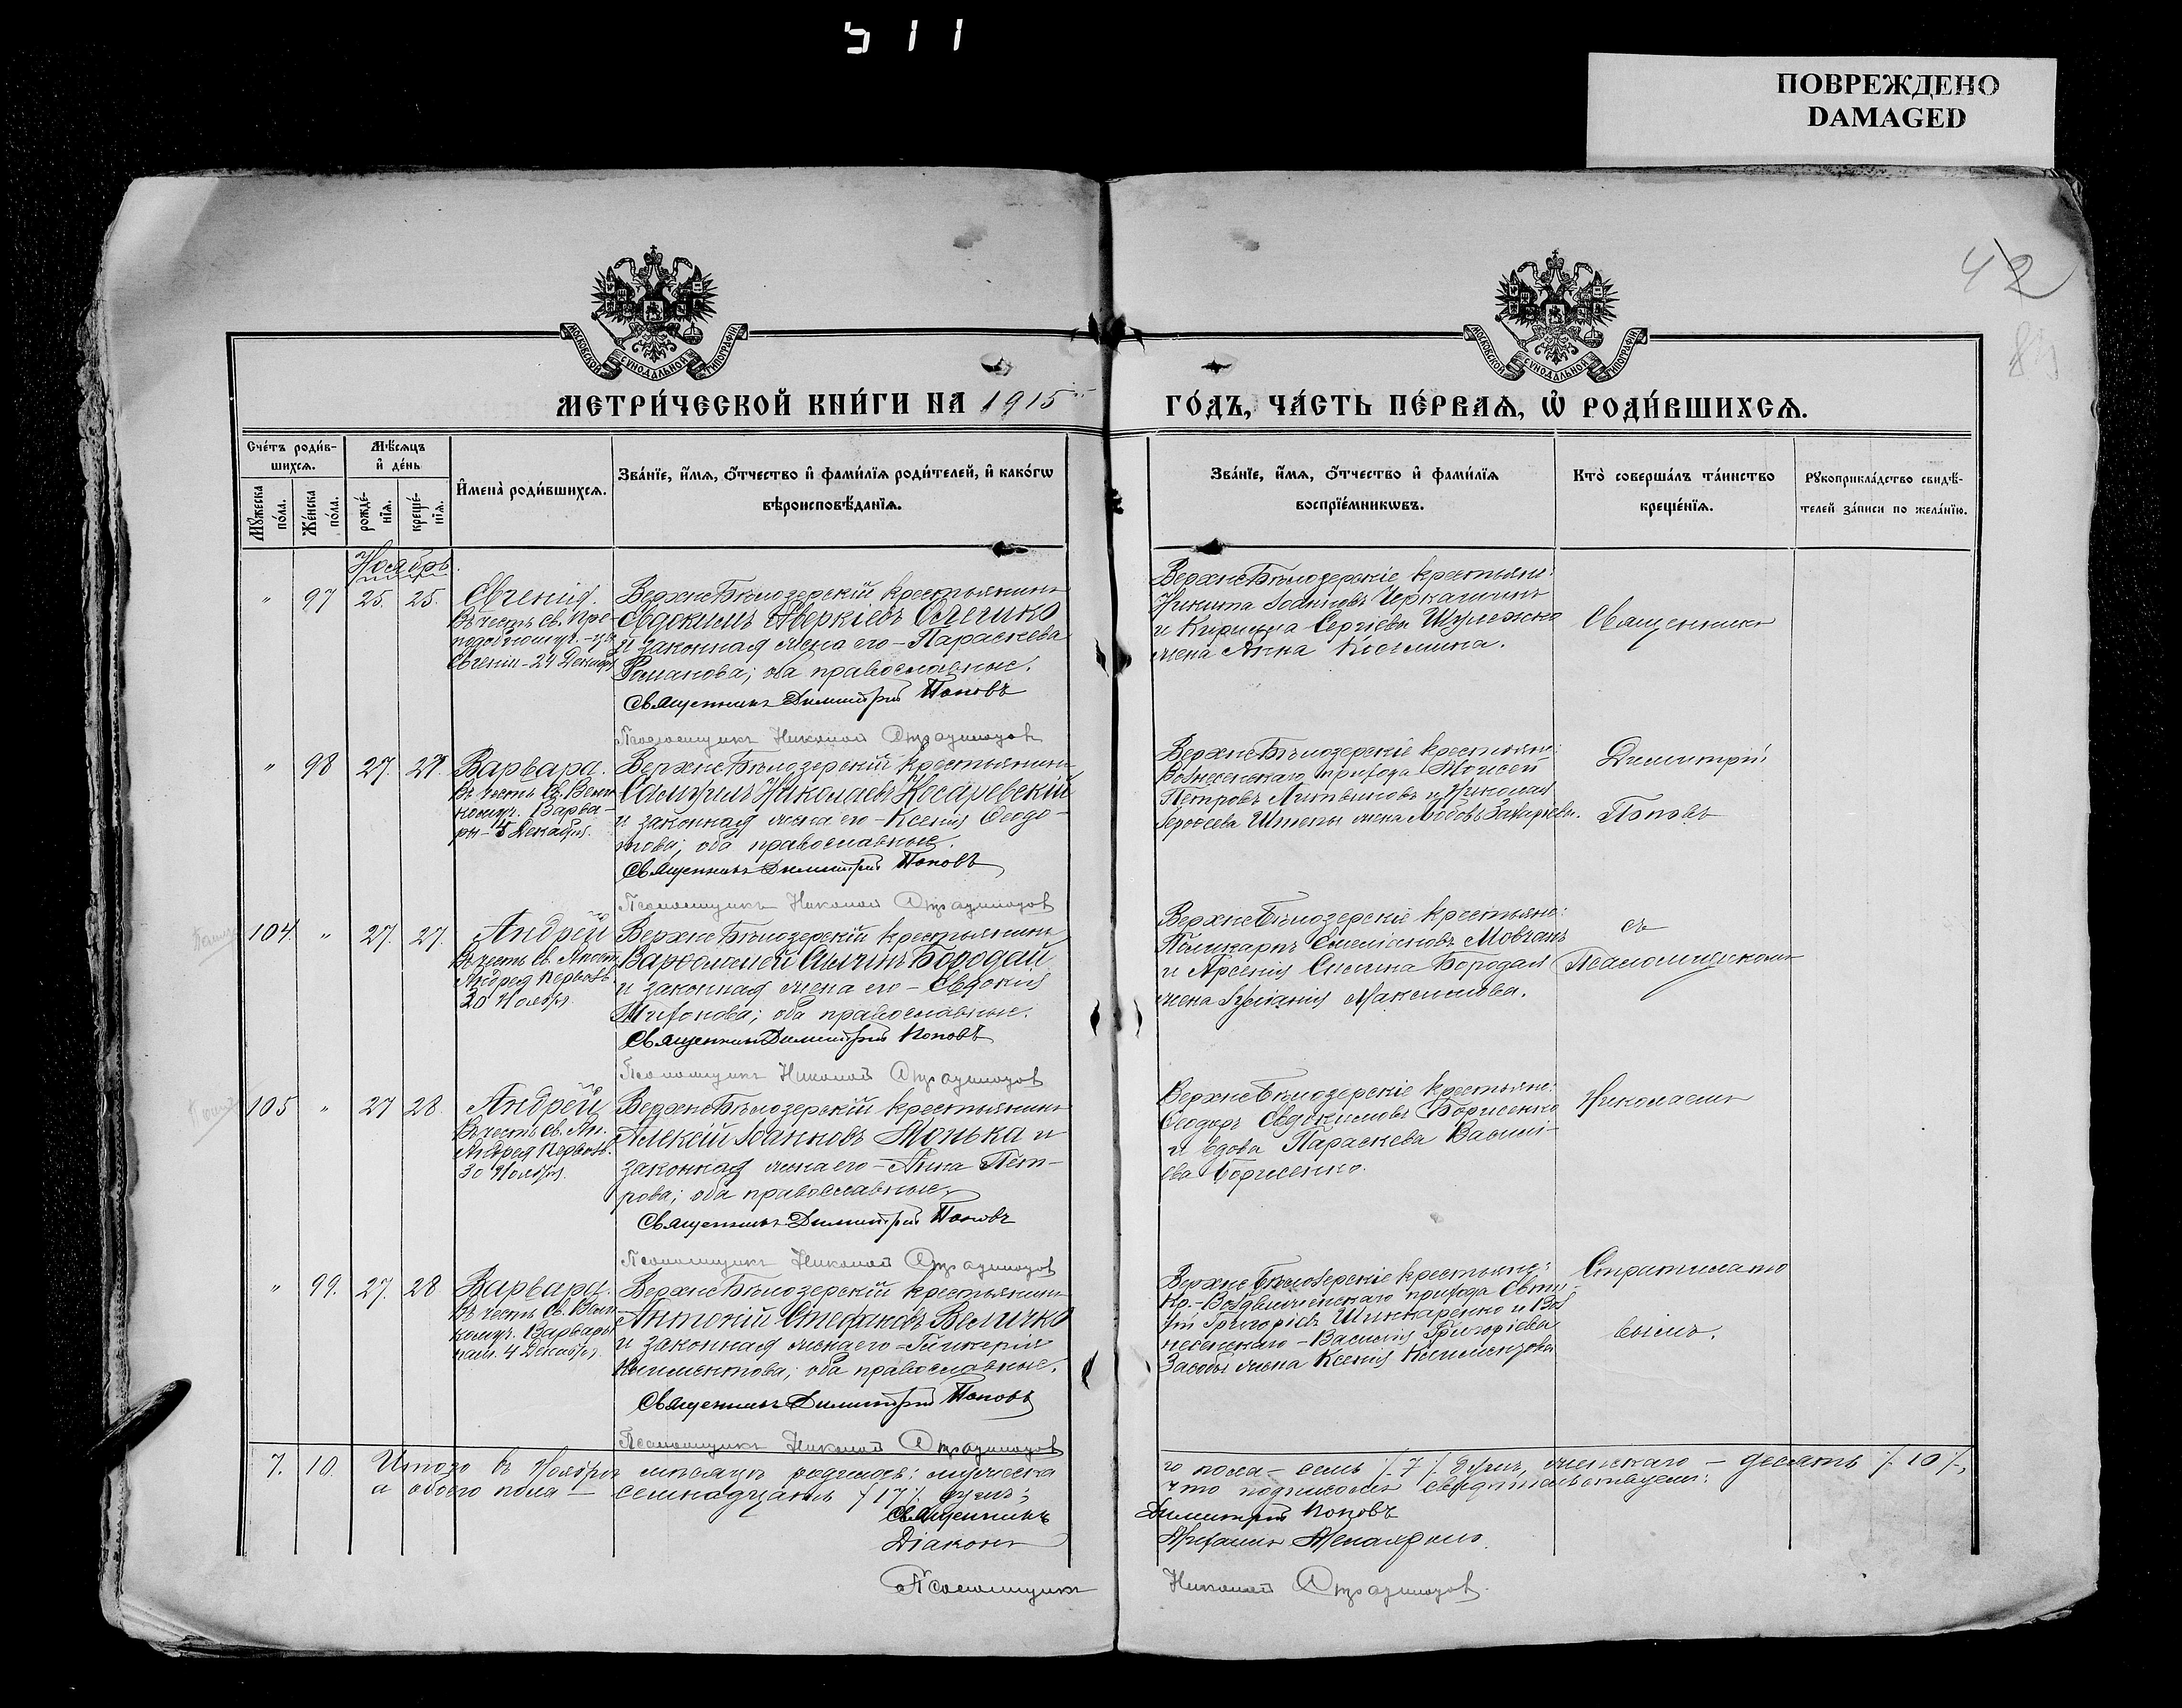 511
ПОВРЕЖДЕНО
DAMAGED
42
МОСКОВСКОЙ СУНОДАЛЬНОЙ ТИПОГРАФІИ
МОСКОВСКОЙ СУНОДАЛЬНОЙ ТИПОГРАФІИ
МЕТРИ́ЧЕСКОЙ КНИ́ГИ НА 1915
ГО́ДЪ, ЧА́СТЬ ПЕ́РВАЯ, Ѡ РОДИ́ВШИХСЯ.
Сче́тъ роди́в-
шихся.
Мѣ́сяцъ
и҆ де́нь
Мꙋ́жеска
по́ла.
Же́нска
по́ла.
рожде́-
нїя.
креще́-
нїя.
И҆мена̀ роди́вшихся.
Зва́нїе, и҆́мя, ѻ҆́тчество и҆ фами́лїя роди́телей, и҆ како́гѡ
вѣроисповѣ́данїя.
Зва́нїе, и҆́мя, ѻ҆́тчество и҆ фами́лїя
воспрїе́мникѡвъ.
Кто̀ соверша́лъ та́инство
креще́нїя.
Рꙋкоприкла́дство свидѣ́-
телей за́писи по жела́нїю.
Ноябрь.
" 97 25. 25. Евгенія.
Въ честь св. Пре-
подобномуч.-цы
Евгеніи - 24 Декабр.
ВерхнеБѣлозерскій крестьянинъ
Евдокимъ Аверкіевъ
и законная жена его - Параскева
Романова; оба православные.
Священникъ Димитрій Поповъ
Псаломщикъ Николай
ВерхнеБѣлозерскіе крестьяне:
Никита Іоанновъ Черкашинъ
и Кирилла Сергіева
жена Анна Косьмина.
Священникъ
" 98 27. 27. Варвара.
Въ честь Св. Вели-
комуч. Варва-
ры - 4 Декабря.
ВерхнеБѣлозерскій крестьянинъ
Самуилъ Николаевъ Носаревскій
и законная жена его - Ксенія Ѳеодо-
това; оба православные.
Священникъ Димитрій Поповъ
Псаломщикъ Николай
ВерхнеБѣлозерскіе крестьяне:
Вознесенскаго прихода Моисей
Петровъ Литвиновъ и Николая
Штепы жена Любовь Захаріева.
Димитрій
Поповъ
104. " 27. 27. Андрей
Въ честь Св. Апост.
Андрея Первозв.
30 Ноября.
ВерхнеБѣлозерскій крестьянинъ
Варѳоломей Бородай
и законная жена его - Евдокія
Тихонова; оба православные.
Священникъ Димитрій Поповъ
Псаломщикъ Николай
ВерхнеБѣлозерскіе крестьяне:
Поликарпъ Емеліановъ Мовчанъ
и Арсенія Бородая
жена Іуліанія Максимова.
съ
Псаломщикомъ
105 " 27 28. Андрей
Въ честь Св. Ап.
Андрея Первозв.
30 Ноября.
ВерхнеБѣлозерскій крестьянинъ
Алексій Іоанновъ Монька и
законная жена его - Анна Пет-
рова; оба православные.
Священникъ Димитрій Поповъ
Псаломщикъ Николай
ВерхнеБѣлозерскіе крестьяне:
Ѳеодоръ Евдокимовъ Борисенко
и вдова Параскева Василі-
ева Борисенко.
Николаемъ
" 99. 27. 28 Варвара.
Въ честь Св. Вели-
комуч. Варвары
пам. 4 Декабря.
ВерхнеБѣлозерскій крестьянинъ
Антоній Стефановъ Величко
и законная жена его - Гликерія
Климентова; оба православные.
Священникъ Димитрій Поповъ
Псаломщикъ Николай
ВерхнеБѣлозерскіе крестьяне:
Кр.-Воздвиженскаго прихода Евти-
хій Григоріевъ Шинкаренко и Воз-
несенскаго - Василія Григоріева
жена Ксенія Климентова
7. 10. Итого въ Ноябрѣ мѣсяцѣ родилось: мужеска-
го пола - семь /7/ душъ, женскаго - десять /10/,
а обоего пола - семнадцать /17/ душъ;
что подписомъ свидѣтельствуемъ:
Священникъ Димитрій Поповъ
Діаконъ
Псаломщикъ Николай